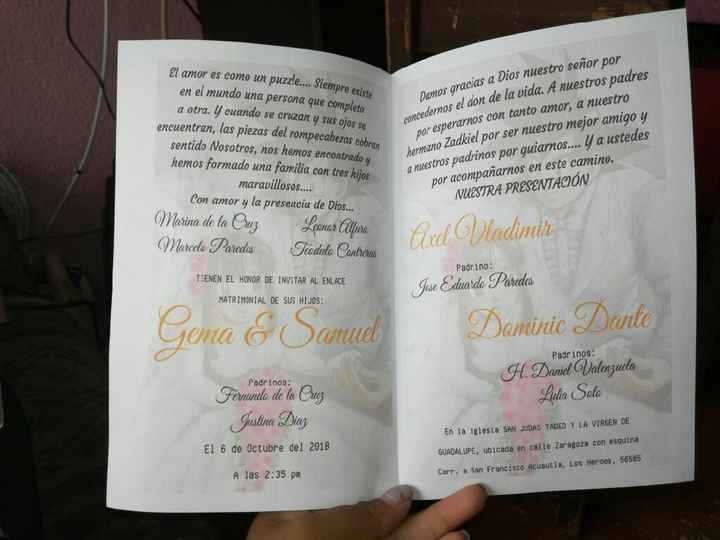 El amor es como un puzzle.... Siempre existe
en el mundo una persona que completa
a otra. Y cuando se cruzan y sus ojos se
encuentran, las piezas del rompecabezas cobran
sentido Nosotros, nos hemos encontrado y
hemos formado una familia con tres hijos
maravillosos....
Con amor y la presencia de Dios...
Marina de la Cruz Leonor Alfaro
Marcelo Paredes Teodulo Contreras
TIENEN EL HONOR DE INVITAR AL ENLACE
MATRIMONIAL DE SUS HIJOS:
Gema & Samuel
Padrinos:
Fernando de la Cruz
Justina Diaz
El 6 de Octubre del 2018
A las 2:35 pm
Demos gracias a Dios nuestro señor por
concedernos el don de la vida. A nuestros padres
por esperarnos con tanto amor, a nuestro
hermano Zadkiel por ser nuestro mejor amigo y
a nuestros padrinos por guiarnos.... Y a ustedes
por acompañarnos en este camino.
NUESTRA PRESENTACIÓN
Axel Vladimir
Padrino:
Jose Eduardo Paredes
Dominic Dante
Padrinos:
H. Daniel Valenzuela
Lidia Soto
En la iglesia SAN JUDAS TADEO Y LA VIRGEN DE
GUADALUPE, ubicada en calle Zaragoza con esquina
Carr. a San Francisco Acuautla, Los Heroes, 56585